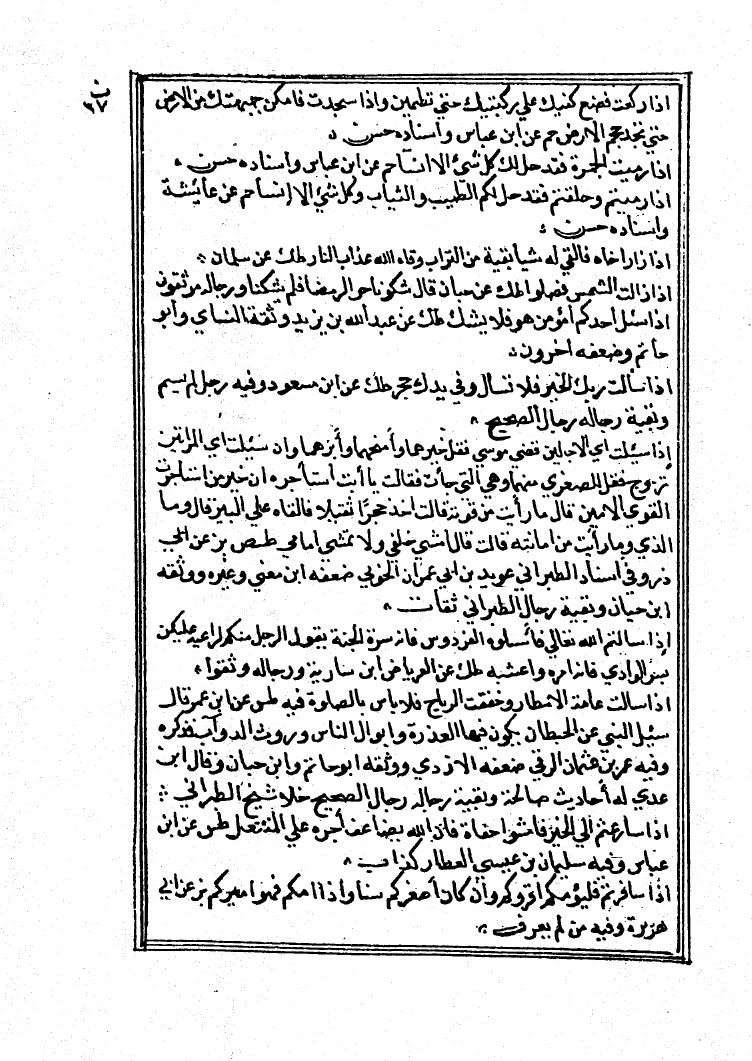 ن ٣٧
اذا ركعت فضع كفيك علي ركبتيك حتي تطمين واذا سجدت فامكن جبهتك من الارض
حتي تجد حجم الارض حم عن ابن عباس واسناده حسن
اذا رميت الجمرة فقد حل لك كل شيء الا النسا حم عن ابن عباس واسناده حسن
اذا رميتم وحلقتم فقد حل لكم الطيب والثياب وكل شي الا النسا حم عن عائشة
واسناده حسن
اذا زار اخاه فالقي له شيا بقية من التراب وقاه الله عذاب النار طك عن سلمان
اذا زالت الشمس فصلوا طك عن حبان قال شكونا حر الرمضا فلم يشكنا ورجاله موثقون
اذا سئل احدكم امؤمن هو فلا يشك طك عن عبد الله بن يزيد وثقة النساي وأبو
حاتم وضعفه اخرون
اذا سألت ربك الخير فلا تسال وفي يدك حجر طك عن ابن مسعود وفيه رجل لم يسم
وبقية رجاله رجال الصحيح
إذا سيلت اي الاجلين قضي موسي فقل خيرهما وأتمهما وأبرهما وان سئلت اي المراتين
تزوج فقل الصغري منهما وهي التي جائت فقالت يا أبت استأجره ان خير من استاجرت
القوي الامين قال ما رأيت من قوته قالت اخذ حجرا ثقيلا فالقاه علي البير قال وما
الذي وما رأيت من امانته قالت قال امشي خلفي ولا تمشي امامي طص بز عن ابي
ذر وفي اسناد الطبراني عويد بن ابي عمران الجوني ضعفه ابن معين وغيره ووثقه
ابن حبان وبقية رجال الطبراني ثقات
إذا سالتم الله تعالي فأسلوه الفردوس فانه سرة الجنة يقول الرجل منكم لراعيه عليك
بسر الوادي فانه امره واعشبه طك عن العرباض ابن سارية ورجاله وثقوا
اذا سالت عامة الامطار وخفقت الرياح فلا باس بالصلوة فيه طس عن ابن عمر قال
سئل النبي عن الحيطان يكون فيها العذرة وابوال الناس وروث الدواب فذكره
وفيه عمر بن عثمان الرقي ضعفه الازدي ووثقه ابو حاتم وابن حبان وقال ابن
عدي له أحاديث صالحة وبقية رجاله رجال الصحيح خلا شيخ الطبراني
اذا سارعتم الي الخير فامشوا حفاة فان الله يضاعف أجره علي المنتعل طس عن ابن
عباس وفيه سليمان بن عيسي العطار كذاب
اذا سافرتم فليؤمكم اقروكم وان كان أصغركم سنا واذا امكم فهو اميركم بز عن ابي
هريرة وفيه من لم يعرف